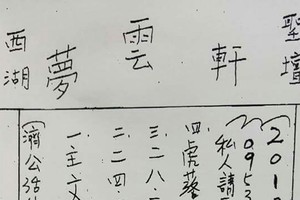 西湖 夢雲軒 聖壇
(濟公活
一.主文
二.二四.
三.二八.
四.虎落
私人請
0953
(201